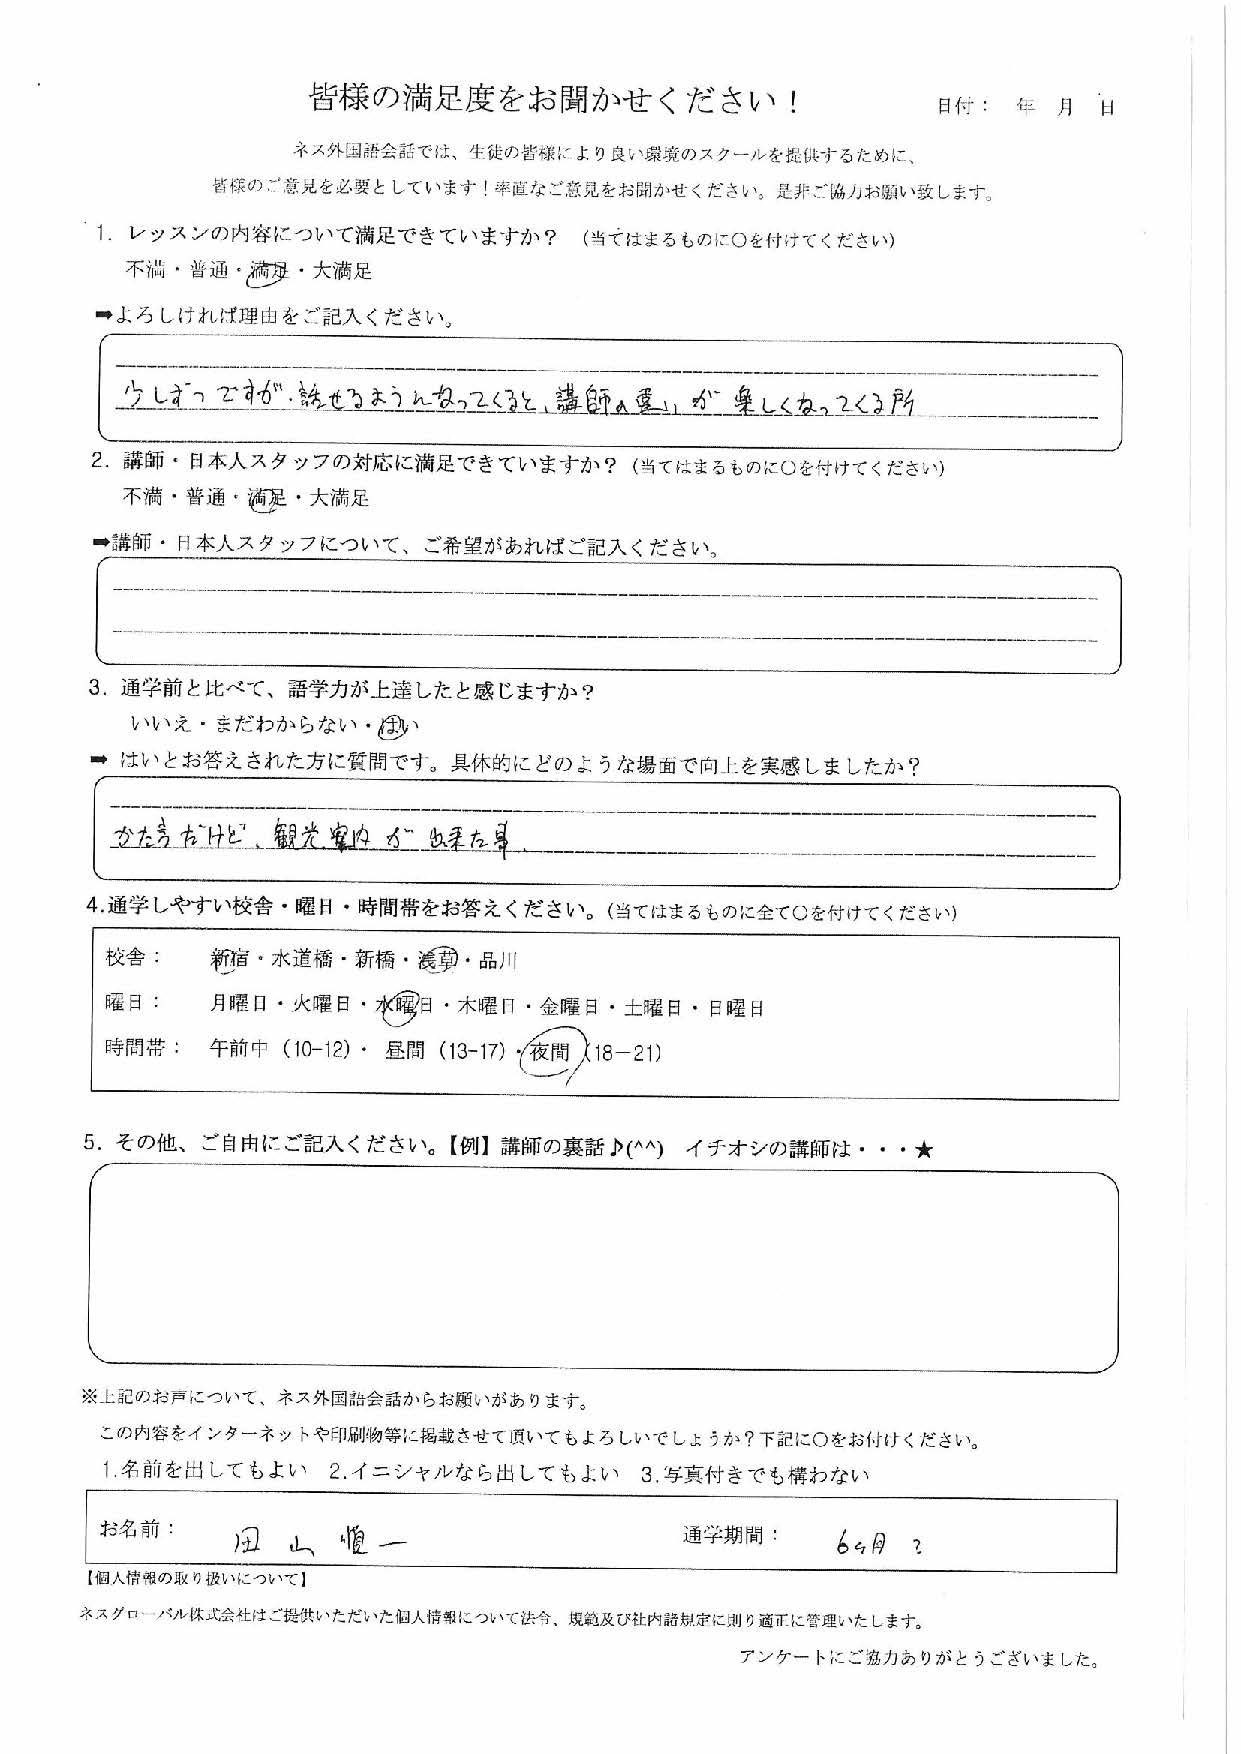 皆様の満足度をお聞かせください！
日付： 年 月 日
ネス外国語会話では、生徒の皆様により良い環境のスクールを提供するために、
皆様のご意見を必要としています！率直なご意見をお聞かせください。是非ご協力お願い致します。
1. レッスンの内容について満足できていますか？ （当てはまるものに〇を付けてください）
不満・普通・満足・大満足
➡よろしければ理由をご記入ください。
少しずつですが、話せるようになってくると、講師の違いが楽しくなってくる所
2. 講師・日本人スタッフの対応に満足できていますか？（当てはまるものに〇を付けてください）
不満・普通・満足・大満足
➡講師・日本人スタッフについて、ご希望があればご記入ください。
3. 通学前と比べて、語学力が上達したと感じますか？
いいえ・まだわからない・はい
➡ はいとお答えされた方に質問です。具体的にどのような場面で向上を実感しましたか？
かた言だけど、観光案内が出来た事、
4.通学しやすい校舎・曜日・時間帯をお答えください。（当てはまるものに全て〇を付けてください）
校舎： 新宿・水道橋・新橋・浅草・品川
曜日： 月曜日・火曜日・水曜日・木曜日・金曜日・土曜日・日曜日
時間帯： 午前中（10-12）・ 昼間（13-17）・夜間（18－21）
5. その他、ご自由にご記入ください。【例】講師の裏話♪(^^) イチオシの講師は・・・★
※上記のお声について、ネス外国語会話からお願いがあります。
この内容をインターネットや印刷物等に掲載させて頂いてもよろしいでしょうか？下記に〇をお付けください。
1.名前を出してもよい 2.イニシャルなら出してもよい 3.写真付きでも構わない
お名前： 田山 一 通学期間： 6ヶ月？
【個人情報の取り扱いについて】
ネスグローバル株式会社はご提供いただいた個人情報について法令、規範及び社内諸規定に則り適正に管理いたします。
アンケートにご協力ありがとうございました。